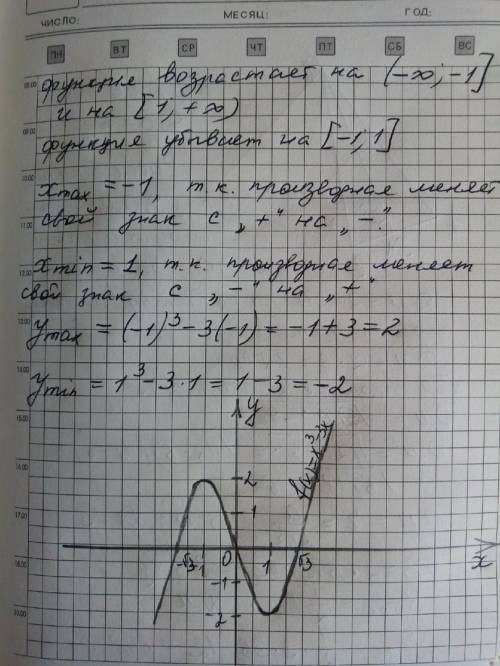 ЧИСЛО: МЕСЯЦ: ГОД:
ПН ВТ СР ЧТ ПТ СБ ВС
функция возрастает на (-∞; -1]
08.00
и на [1; +∞)
09.00
функция убывает на [-1; 1]
10.00
xmax = -1, т.к. производная меняет
свой знак с „+“ на „-“.
11.00
xmin = 1, т.к. производная меняет
12.00
свой знак с „-“ на „+“
13.00
ymax = (-1)³ - 3(-1) = -1 + 3 = 2
14.00
ymin = 1³ - 3·1 = 1 - 3 = -2
15.00
y
f(x)=x³-3x
2
1
17.00
-√3 -1 0 1 √3 x
18.00
-1
-2